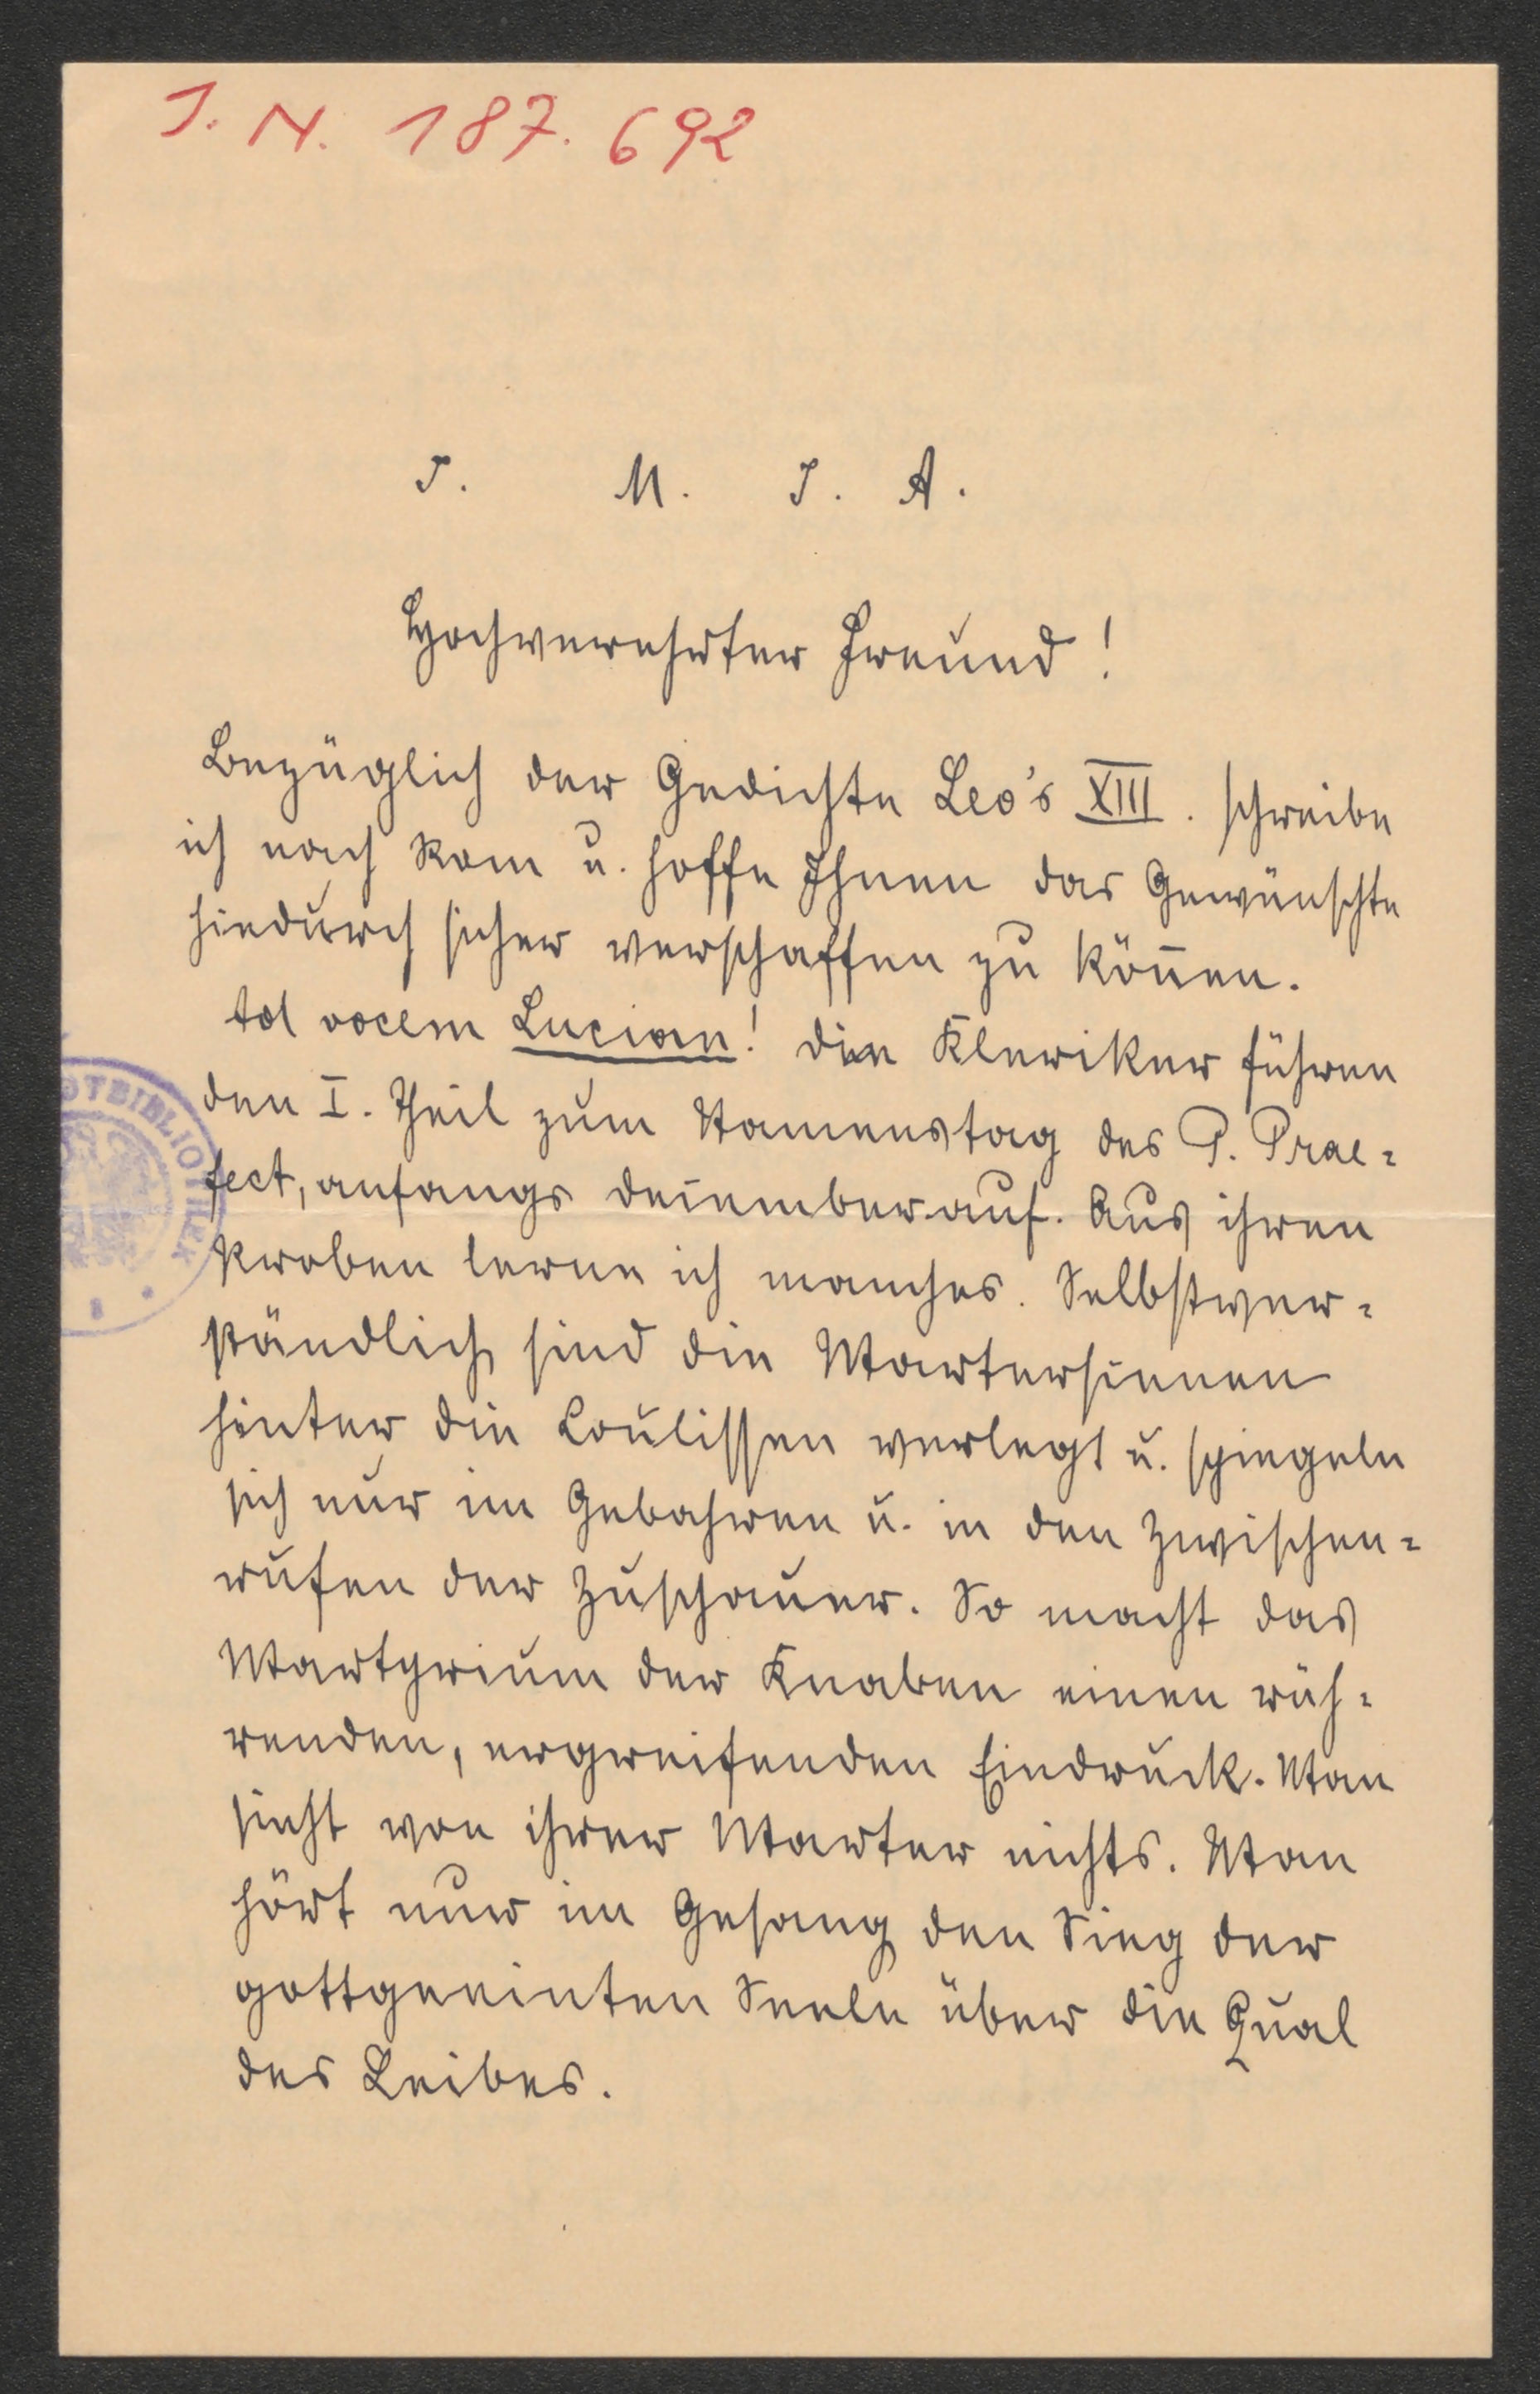 J. N. 187.692
J. M. J. A.
Hochverehrter Freund!
Bezüglich der Gedichte Leo's XIII. schreibe
ich nach Rom u. hoffe Ihnen das Gewünschte
hiedurch sicher verschaffen zu können.
Ad vocem Lucian! Die Kleriker führen
den I. Theil zum Namenstag des P. Prae=
fect, anfangs Dezember auf. Aus ihren
Proben lerne ich manches. Selbstver=
ständlich sind die Marterscenen
hinter die Coulissen verlegt u. spiegeln
sich nur im Gebahren u. in den Zwischen=
rufen der Zuschauer. So macht das
Martyrium der Knaben einen rüh=
renden, ergreifenden Eindruck. Man
sieht von ihrer Marter nichts. Man
hört nur im Gesang den Sieg der
gottgeeinten Seele über die Qual
des Leibes.